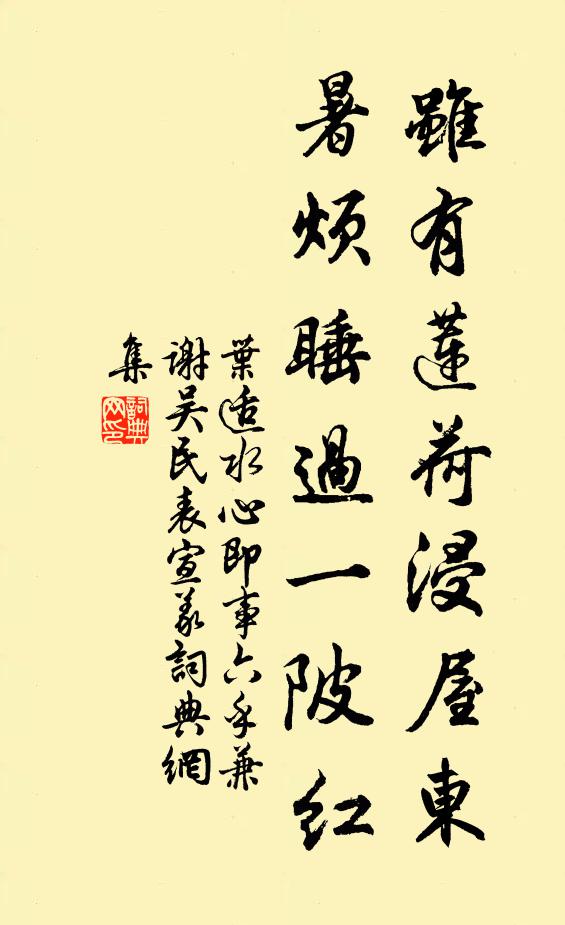 雖有蓮荷浸屋東
暑煩睡過一陂紅
葉适水心即事六手兼
謝吴民表宣義詞典網
集
詞典
网印